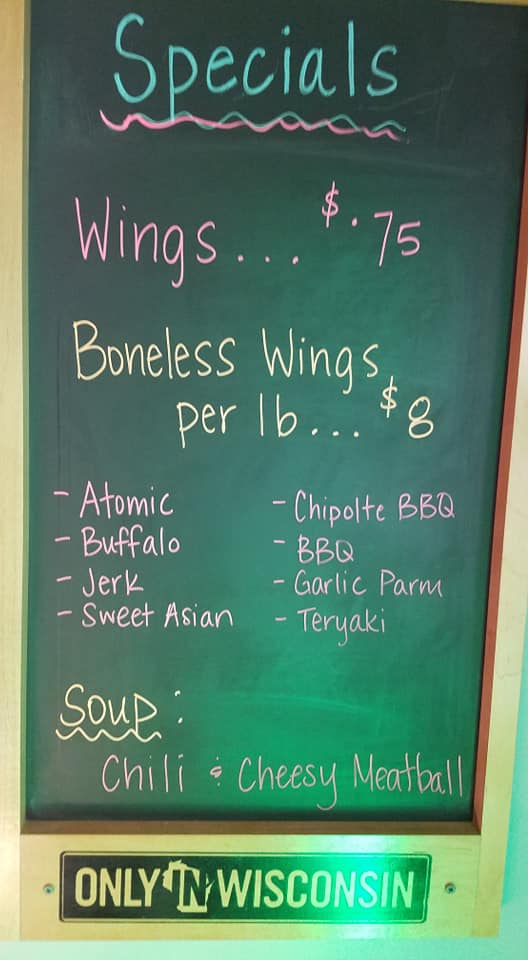 Specials
Wings... $.75
Boneless Wings
per lb... $8
- Atomic
- Buffalo
- Jerk
- Sweet Asian
- Chipolte BBQ
- BBQ
- Garlic Parm
- Teryaki
Soup:
Chili & Cheesy Meatball
ONLY IN WISCONSIN